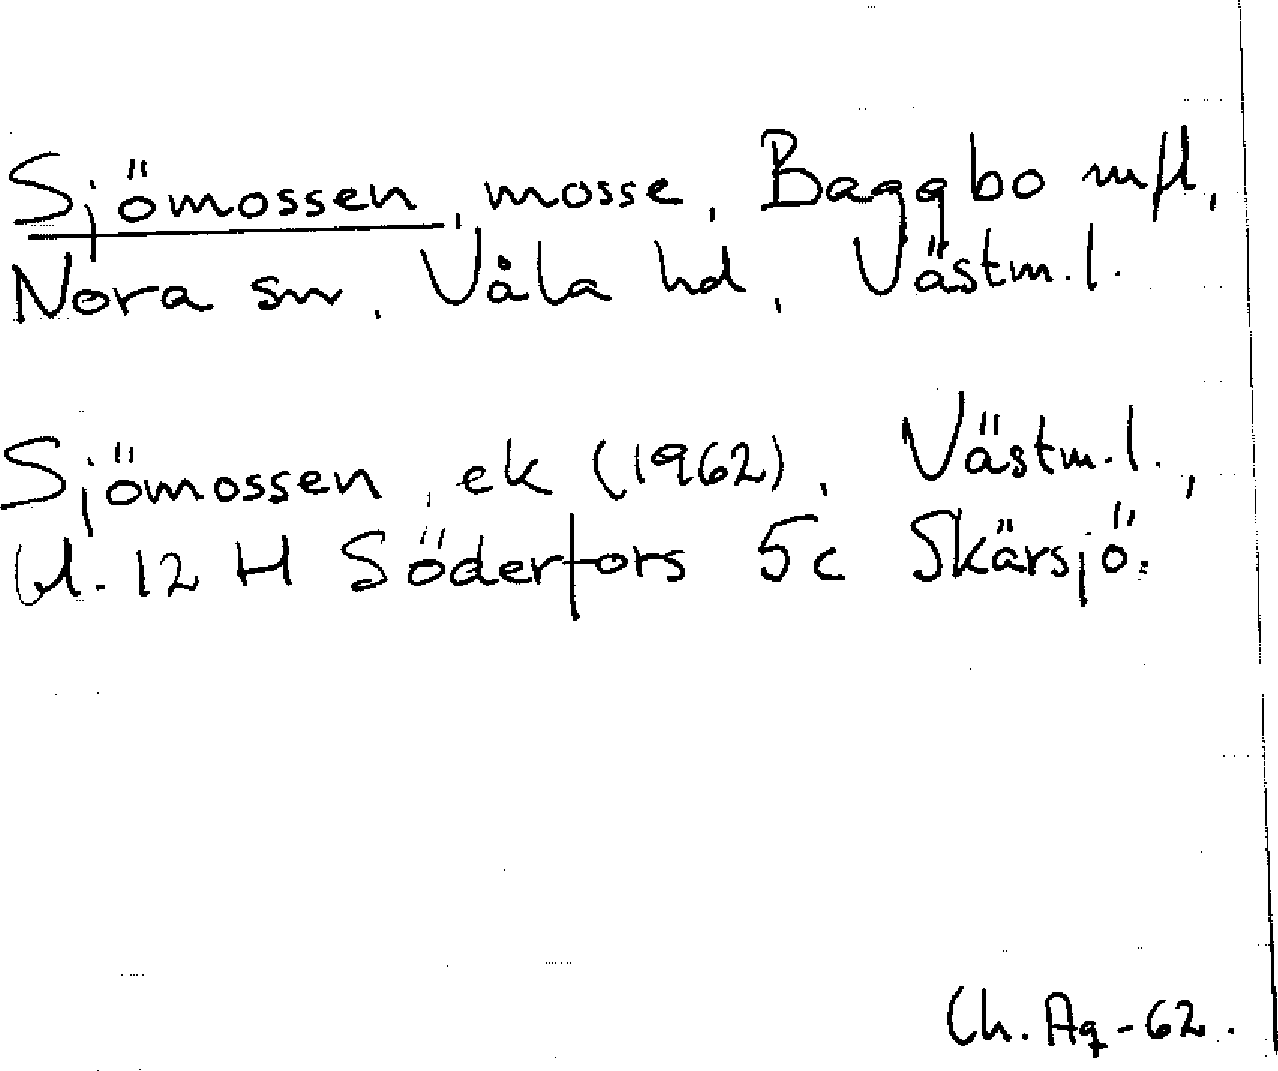 Sjömossen, mosse, Baggbo mfl,
Nora sn, Våla hd, Västm.l.
Sjömossen, ek (1962), Västm.l.,
bl. 12 H Söderfors 5c Skärsjö.
Ch. Ag -62.